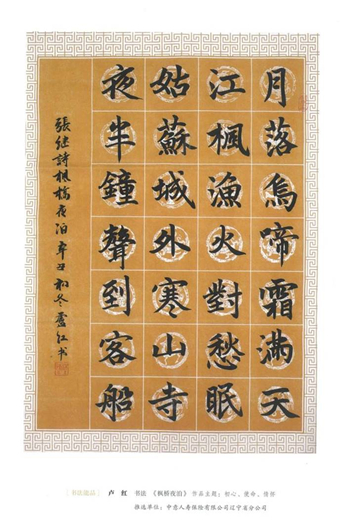 月落烏啼霜滿天
江楓漁火對愁眠
姑蘇城外寒山寺
夜半鐘聲到客船
張继詩楓橋夜泊辛丑初冬盧红书
书法部品 卢 红 书法 《枫桥夜泊》 作品主题：初心、使命、情怀
推选单位：中意人寿保险有限公司辽宁省分公司